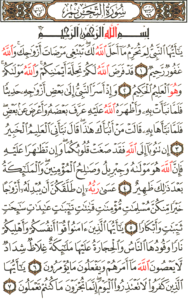 سُورَةُ التَّحْرِيمِ
بِسْمِ اللَّهِ الرَّحْمَٰنِ الرَّحِيمِ
يَٰٓأَيُّهَا ٱلنَّبِىُّ لِمَ تُحَرِّمُ مَآ أَحَلَّ ٱللَّهُ لَكَ تَبْتَغِى مَرْضَاتَ أَزْوَٰجِكَ وَٱللَّهُ
غَفُورٌ رَّحِيمٌ ١ قَدْ فَرَضَ ٱللَّهُ لَكُمْ تَحِلَّةَ أَيْمَٰنِكُمْ وَٱللَّهُ مَوْلَىٰكُمْ
وَهُوَ ٱلْعَلِيمُ ٱلْحَكِيمُ ٢ وَإِذْ أَسَرَّ ٱلنَّبِىُّ إِلَىٰ بَعْضِ أَزْوَٰجِهِ حَدِيثًا
فَلَمَّا نَبَّأَتْ بِهِ وَأَظْهَرَهُ ٱللَّهُ عَلَيْهِ عَرَّفَ بَعْضَهُ وَأَعْرَضَ عَنْ بَعْضٍ
فَلَمَّا نَبَّأَهَا بِهِ قَالَتْ مَنْ أَنْبَأَكَ هَٰذَا قَالَ نَبَّأَنِىَ ٱلْعَلِيمُ ٱلْخَبِيرُ
٣ إِن تَتُوبَآ إِلَى ٱللَّهِ فَقَدْ صَغَتْ قُلُوبُكُمَا وَإِن تَظَٰهَرَا عَلَيْهِ
فَإِنَّ ٱللَّهَ هُوَ مَوْلَىٰهُ وَجِبْرِيلُ وَصَٰلِحُ ٱلْمُؤْمِنِينَ وَٱلْمَلَٰٓئِكَةُ
بَعْدَ ذَٰلِكَ ظَهِيرٌ ٤ عَسَىٰ رَبُّهُۥٓ إِن طَلَّقَكُنَّ أَن يُبْدِلَهُۥٓ أَزْوَٰجًا
خَيْرًا مِّنكُنَّ مُسْلِمَٰتٍ مُّؤْمِنَٰتٍ قَٰنِتَٰتٍ تَٰٓئِبَٰتٍ عَٰبِدَٰتٍ سَٰٓئِحَٰتٍ
ثَيِّبَٰتٍ وَأَبْكَارًا ٥ يَٰٓأَيُّهَا ٱلَّذِينَ ءَامَنُوا۟ قُوٓا۟ أَنفُسَكُمْ وَأَهْلِيكُمْ
نَارًا وَقُودُهَا ٱلنَّاسُ وَٱلْحِجَارَةُ عَلَيْهَا مَلَٰٓئِكَةٌ غِلَاظٌ شِدَادٌ
لَّا يَعْصُونَ ٱللَّهَ مَآ أَمَرَهُمْ وَيَفْعَلُونَ مَا يُؤْمَرُونَ ٦ يَٰٓأَيُّهَا
ٱلَّذِينَ كَفَرُوا۟ لَا تَعْتَذِرُوا۟ ٱلْيَوْمَ إِنَّمَا تُجْزَوْنَ مَا كُنتُمْ تَعْمَلُونَ ٧